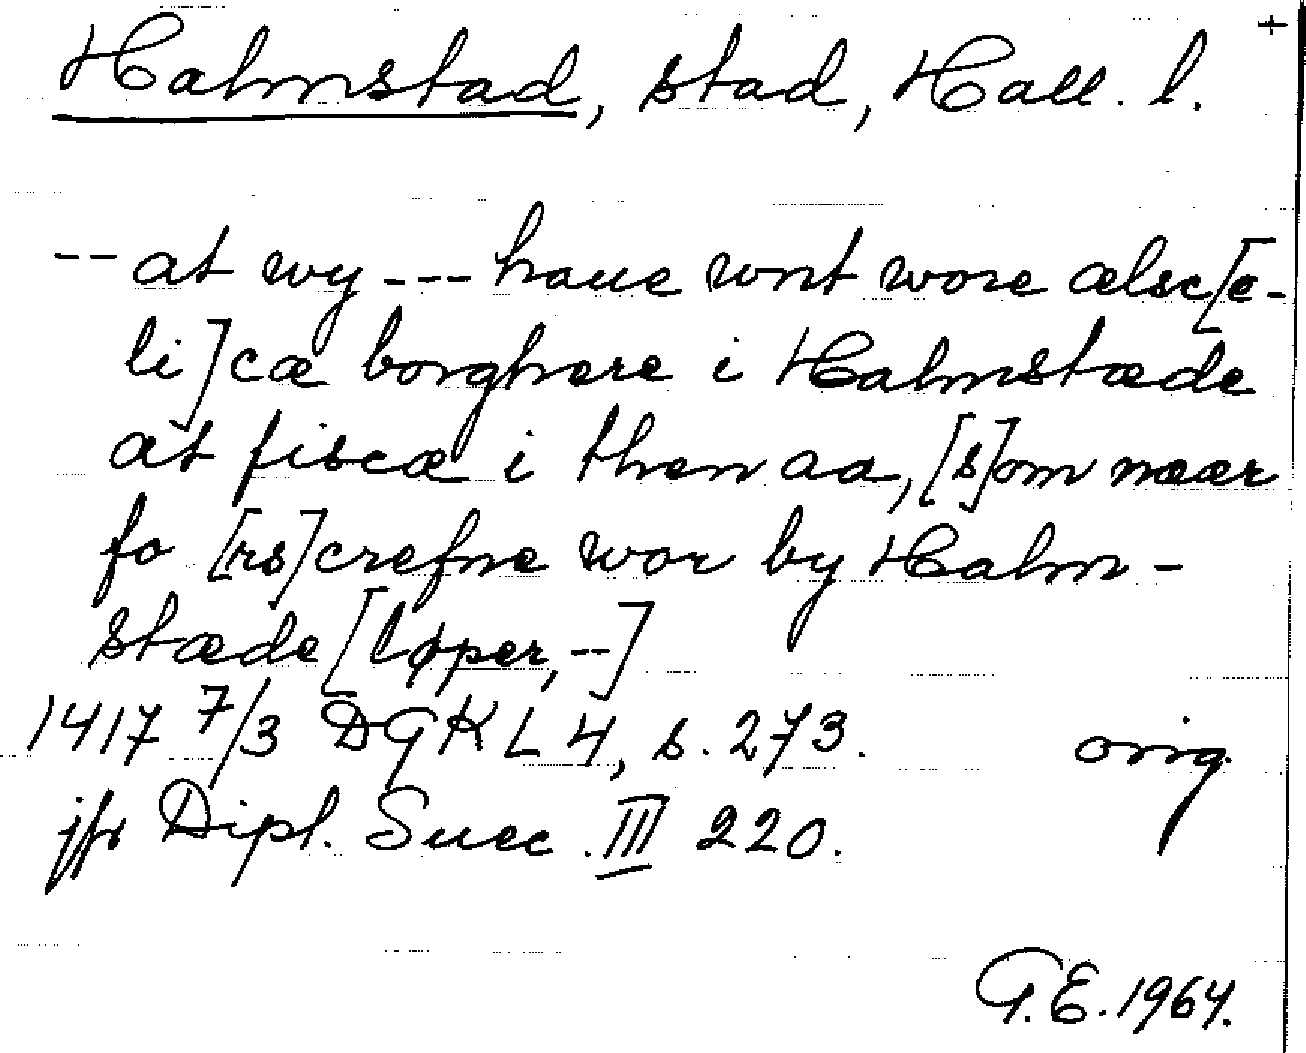 +
Halmstad, stad, Hall. l.
-- at wy --- haue wnt wore ælsc[e-
li]cæ borghere i Halmstæde
at fiscæ i then aa, [s]om næær
fo [rs]crefne wor by Halm-
stæde [løper, --]
1417 7/3 DGKL 4, s. 273. orig.
jfr Dipl. Suec. III 220.
G.E. 1964.